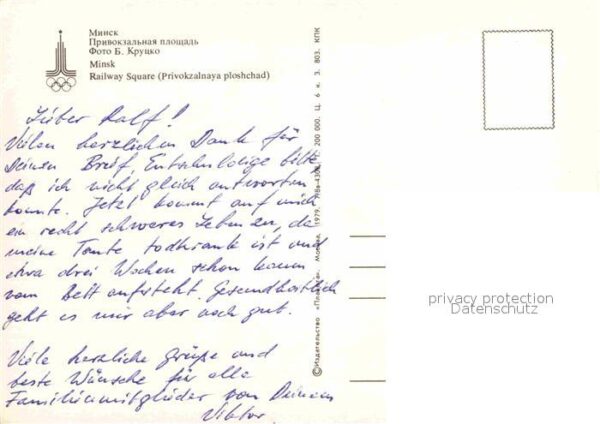 Минск
Привокзальная площадь
Фото Б. Круцко
Minsk
Railway Square (Privokzalnaya ploshchad)
Lieber Ralf!
Vielen herzlichen Dank für
Deinen Brief, Entschuldige bitte,
daß ich nicht gleich antworten
konnte. Jetzt kommt auf mich
ein recht schweres Leben zu, da
meine Tante todkrank ist und
etwa drei Wochen schon kaum
vom Bett aufsteht. Gesundheitlich
geht es mir aber noch gut.
Viele herzliche Grüße und
beste Wünsche für alle
Familienmitglieder von Deinem
Viktor.
©Издательство «Планета». Москва, 1979. 200 000. Ц. 6 к. З. 803. КПК
privacy protection
Datenschutz